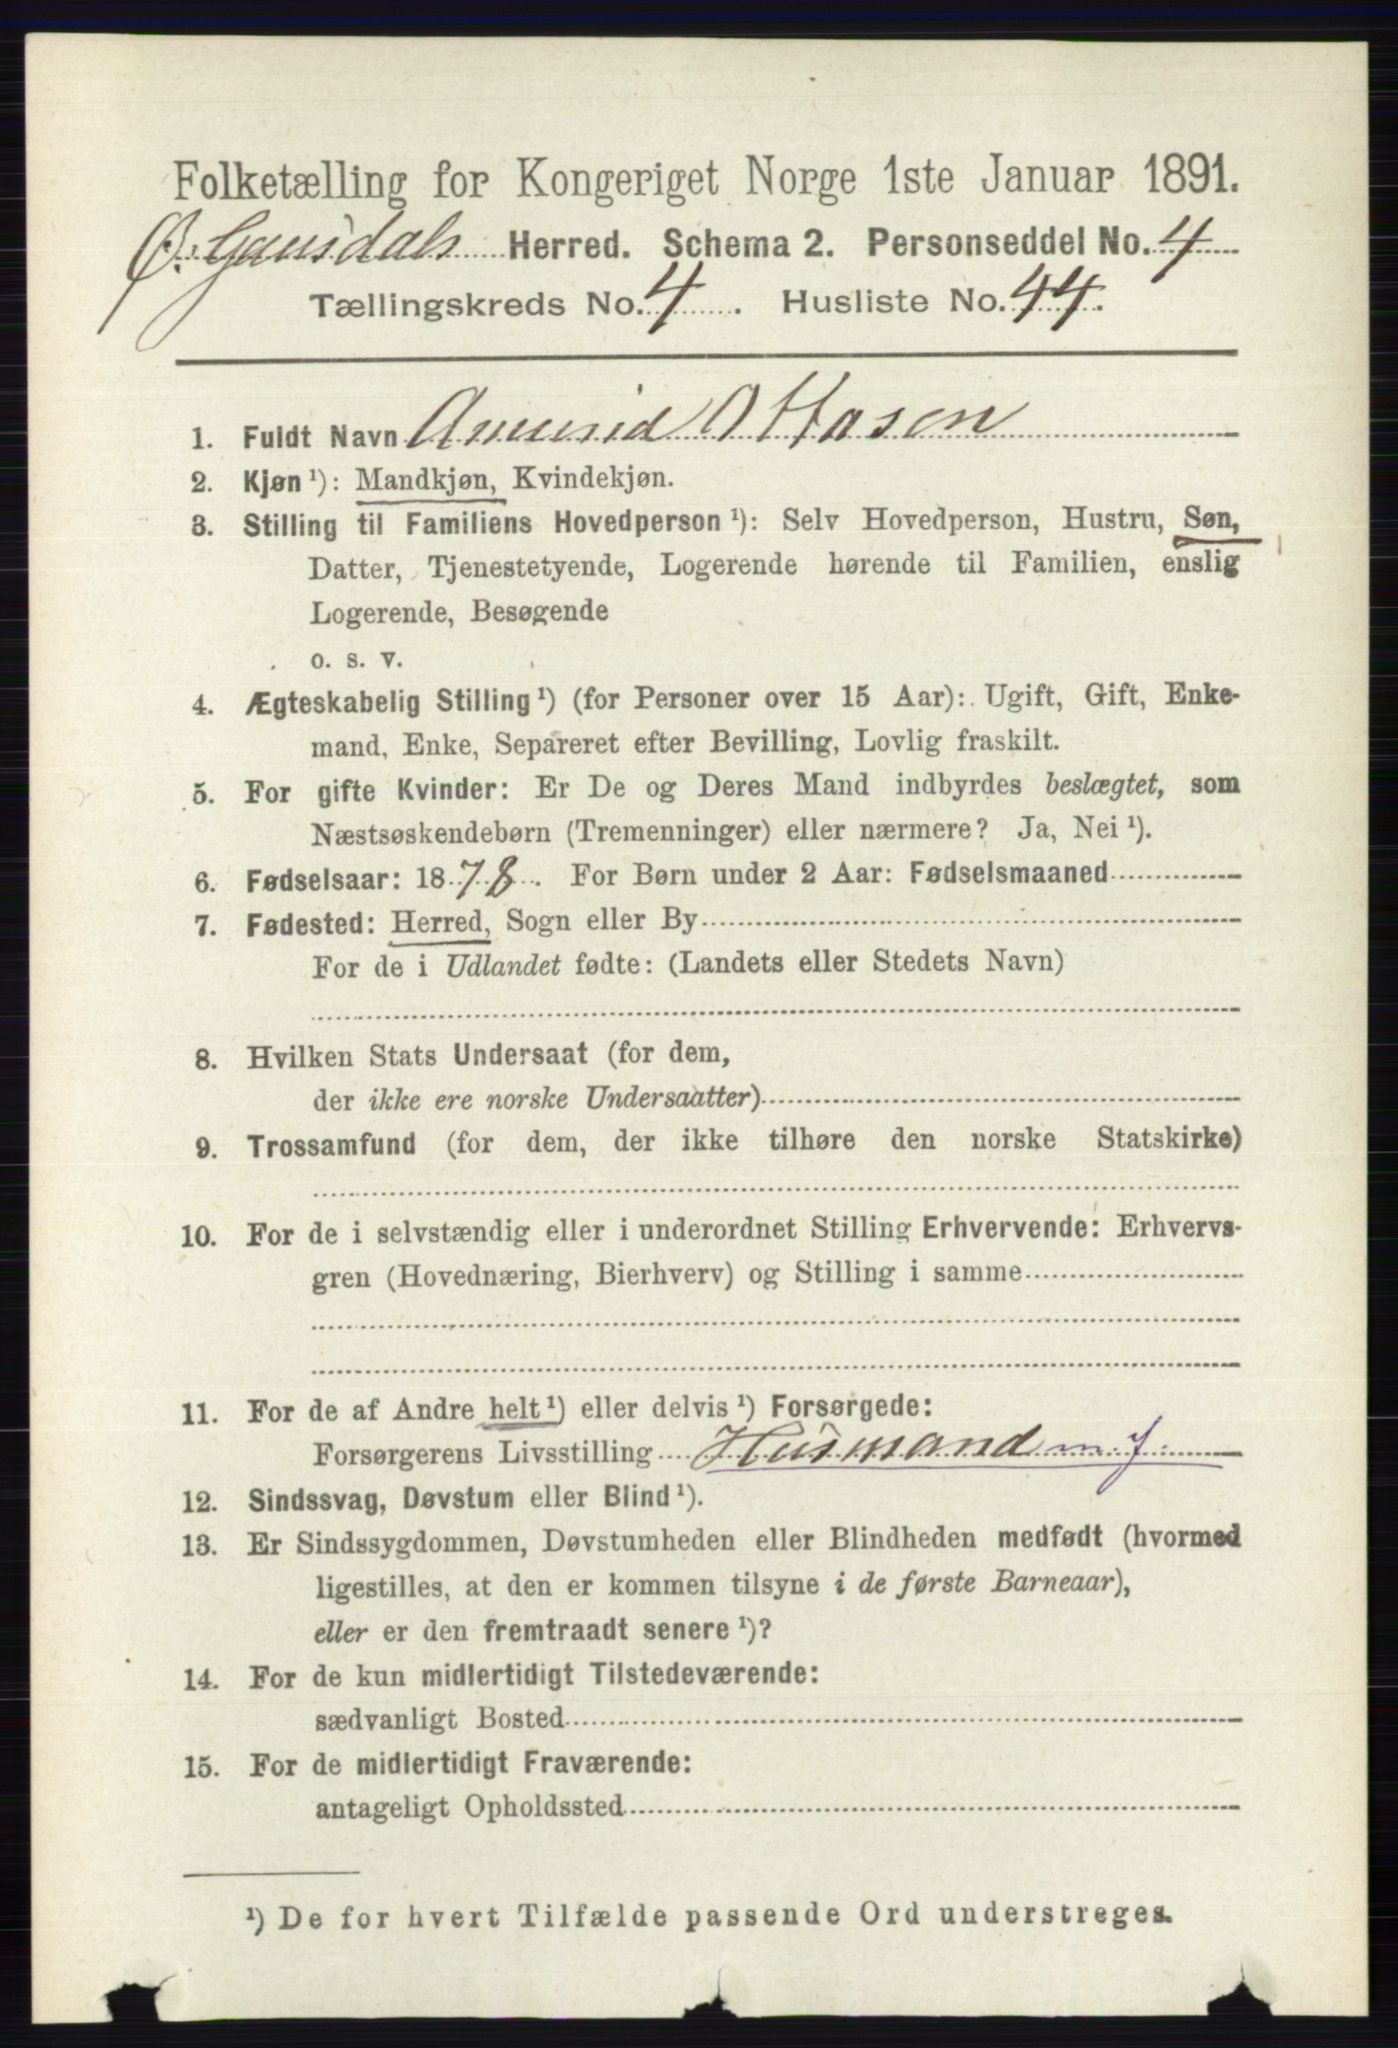 Folketælling for Kongeriget Norge 1ste Januar 1891.
Ø. Gausdals Herred. Schema 2. Personseddel No. 4
Tællingskreds No. 4. Husliste No. 44.
1. Fuldt Navn Amund Ottosen
2. Kjøn ¹): Mandkjøn, Kvindekjøn.
3. Stilling til Familiens Hovedperson ¹): Selv Hovedperson, Hustru, Søn,
Datter, Tjenestetyende, Logerende hørende til Familien, enslig
Logerende, Besøgende
o. s. v.
4. Ægteskabelig Stilling ¹) (for Personer over 15 Aar): Ugift, Gift, Enke-
mand, Enke, Separeret efter Bevilling, Lovlig fraskilt.
5. For gifte Kvinder: Er De og Deres Mand indbyrdes beslægtet, som
Næstsøskendebørn (Tremenninger) eller nærmere? Ja, Nei ¹).
6. Fødselsaar: 1878. For Børn under 2 Aar: Fødselsmaaned
7. Fødested: Herred, Sogn eller By
For de i Udlandet fødte: (Landets eller Stedets Navn)
8. Hvilken Stats Undersaat (for dem,
der ikke ere norske Undersaatter)
9. Trossamfund (for dem, der ikke tilhøre den norske Statskirke)
10. For de i selvstændig eller i underordnet Stilling Erhvervende: Erhvervs-
gren (Hovednæring, Bierhverv) og Stilling i samme
11. For de af Andre helt ¹) eller delvis ¹) Forsørgede:
Forsørgerens Livsstilling Husmand m. j.
12. Sindssvag, Døvstum eller Blind ¹).
13. Er Sindssygdommen, Døvstumheden eller Blindheden medfødt (hvormed
ligestilles, at den er kommen tilsyne i de første Barneaar),
eller er den fremtraadt senere ¹)?
14. For de kun midlertidigt Tilstedeværende:
sædvanligt Bosted
15. For de midlertidigt Fraværende:
antageligt Opholdssted
¹) De for hvert Tilfælde passende Ord understreges.